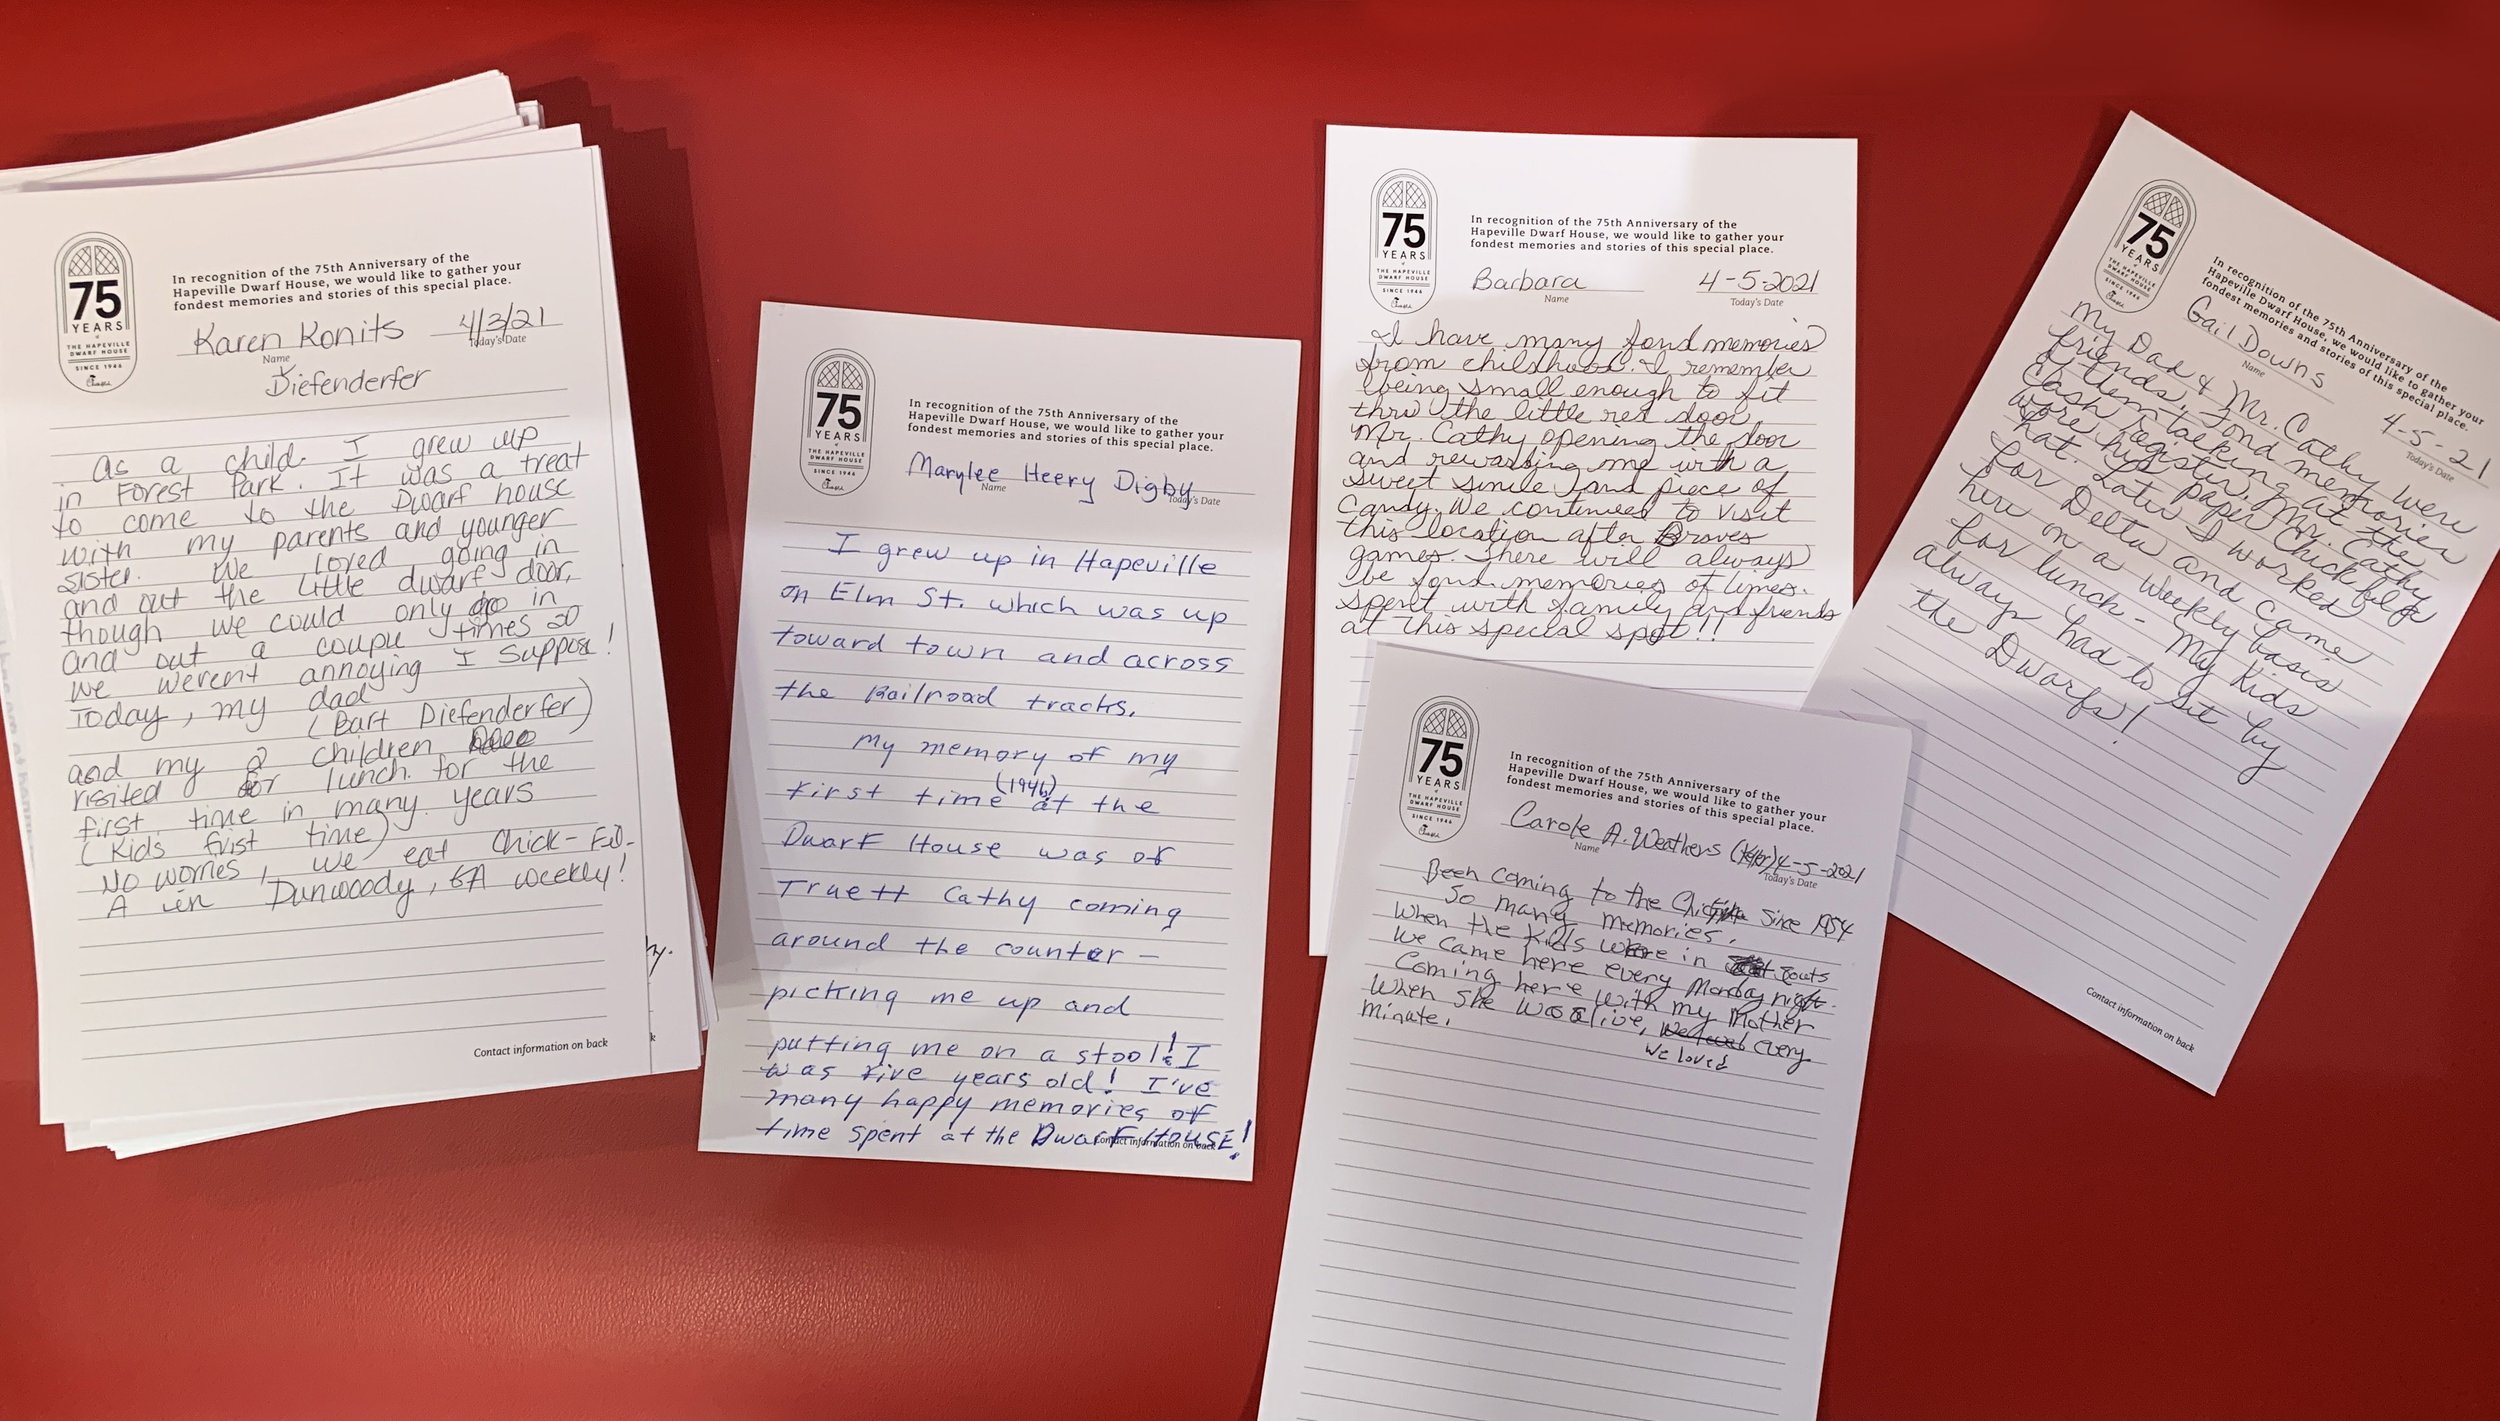 75
YEARS
of
THE HAPEVILLE
DWARF HOUSE
SINCE 1946
In recognition of the 75th Anniversary of the
Hapeville Dwarf House, we would like to gather your
fondest memories and stories of this special place.
Karen Konits 4/3/21
Name Today's Date
Diefenderfer
As a child I grew up
in Forest Park. It was a treat
to come to the Dwarf house
with my parents and younger
sister. We loved going in
and out the little dwarf door,
though we could only go in
and out a couple times so
we weren't annoying I suppose!
Today, my dad
(Bart Diefenderfer)
and my 2 children
visited for lunch for the
first time in many years
(Kids frist time)
No worries, we eat Chick-Fil-
A in Dunwoody, GA weekly!
Contact information on back
75
YEARS
of
THE HAPEVILLE
DWARF HOUSE
SINCE 1946
In recognition of the 75th Anniversary of the
Hapeville Dwarf House, we would like to gather your
fondest memories and stories of this special place.
Marylee Heery Digby
Name Today's Date
I grew up in Hapeville
on Elm St. which was up
toward town and across
the Railroad tracks.
My memory of my
first time (1946) at the
Dwarf House was of
Truett Cathy coming
around the counter –
picking me up and
putting me on a stool! I
was five years old! I've
many happy memories of
time spent at the Dwarf House!
Contact information on back
75
YEARS
of
THE HAPEVILLE
DWARF HOUSE
SINCE 1946
In recognition of the 75th Anniversary of the
Hapeville Dwarf House, we would like to gather your
fondest memories and stories of this special place.
Barbara 4-5-2021
Name Today's Date
I have many fond memories
from childhood. I remember
being small enough to fit
thru the little red door
Mr. Cathy opening the door
and rewarding me with a
sweet smile and piece of
Candy. We continued to visit
this location after Braves
games. There will always
be fond memories of times
spent with family and friends
at this special spot!!
75
YEARS
of
THE HAPEVILLE
DWARF HOUSE
SINCE 1946
In recognition of the 75th Anniversary of the
Hapeville Dwarf House, we would like to gather your
fondest memories and stories of this special place.
Carole A. Weathers 4-5-2021
Name Today's Date
Been coming to the since 1954
So many memories.
When the kids were in
We came here every Monday night.
Coming here with my Mother
When she was alive, every
We loved
minute.
75
YEARS
of
THE HAPEVILLE
DWARF HOUSE
SINCE 1946
In recognition of the 75th Anniversary of the
Hapeville Dwarf House, we would like to gather your
fondest memories and stories of this special place.
Gail Downs 4-5-21
Name Today's Date
My Dad & Mr. Cathy were
friends. Fond memories
of them talking at the
Cash register. Mr. Cathy
wore his paper Chick fil a
hat. Later I worked
for Delta and came
here on a weekly basis
for lunch - My Kids
always had to sit by
the Dwarfs!
Contact information on back